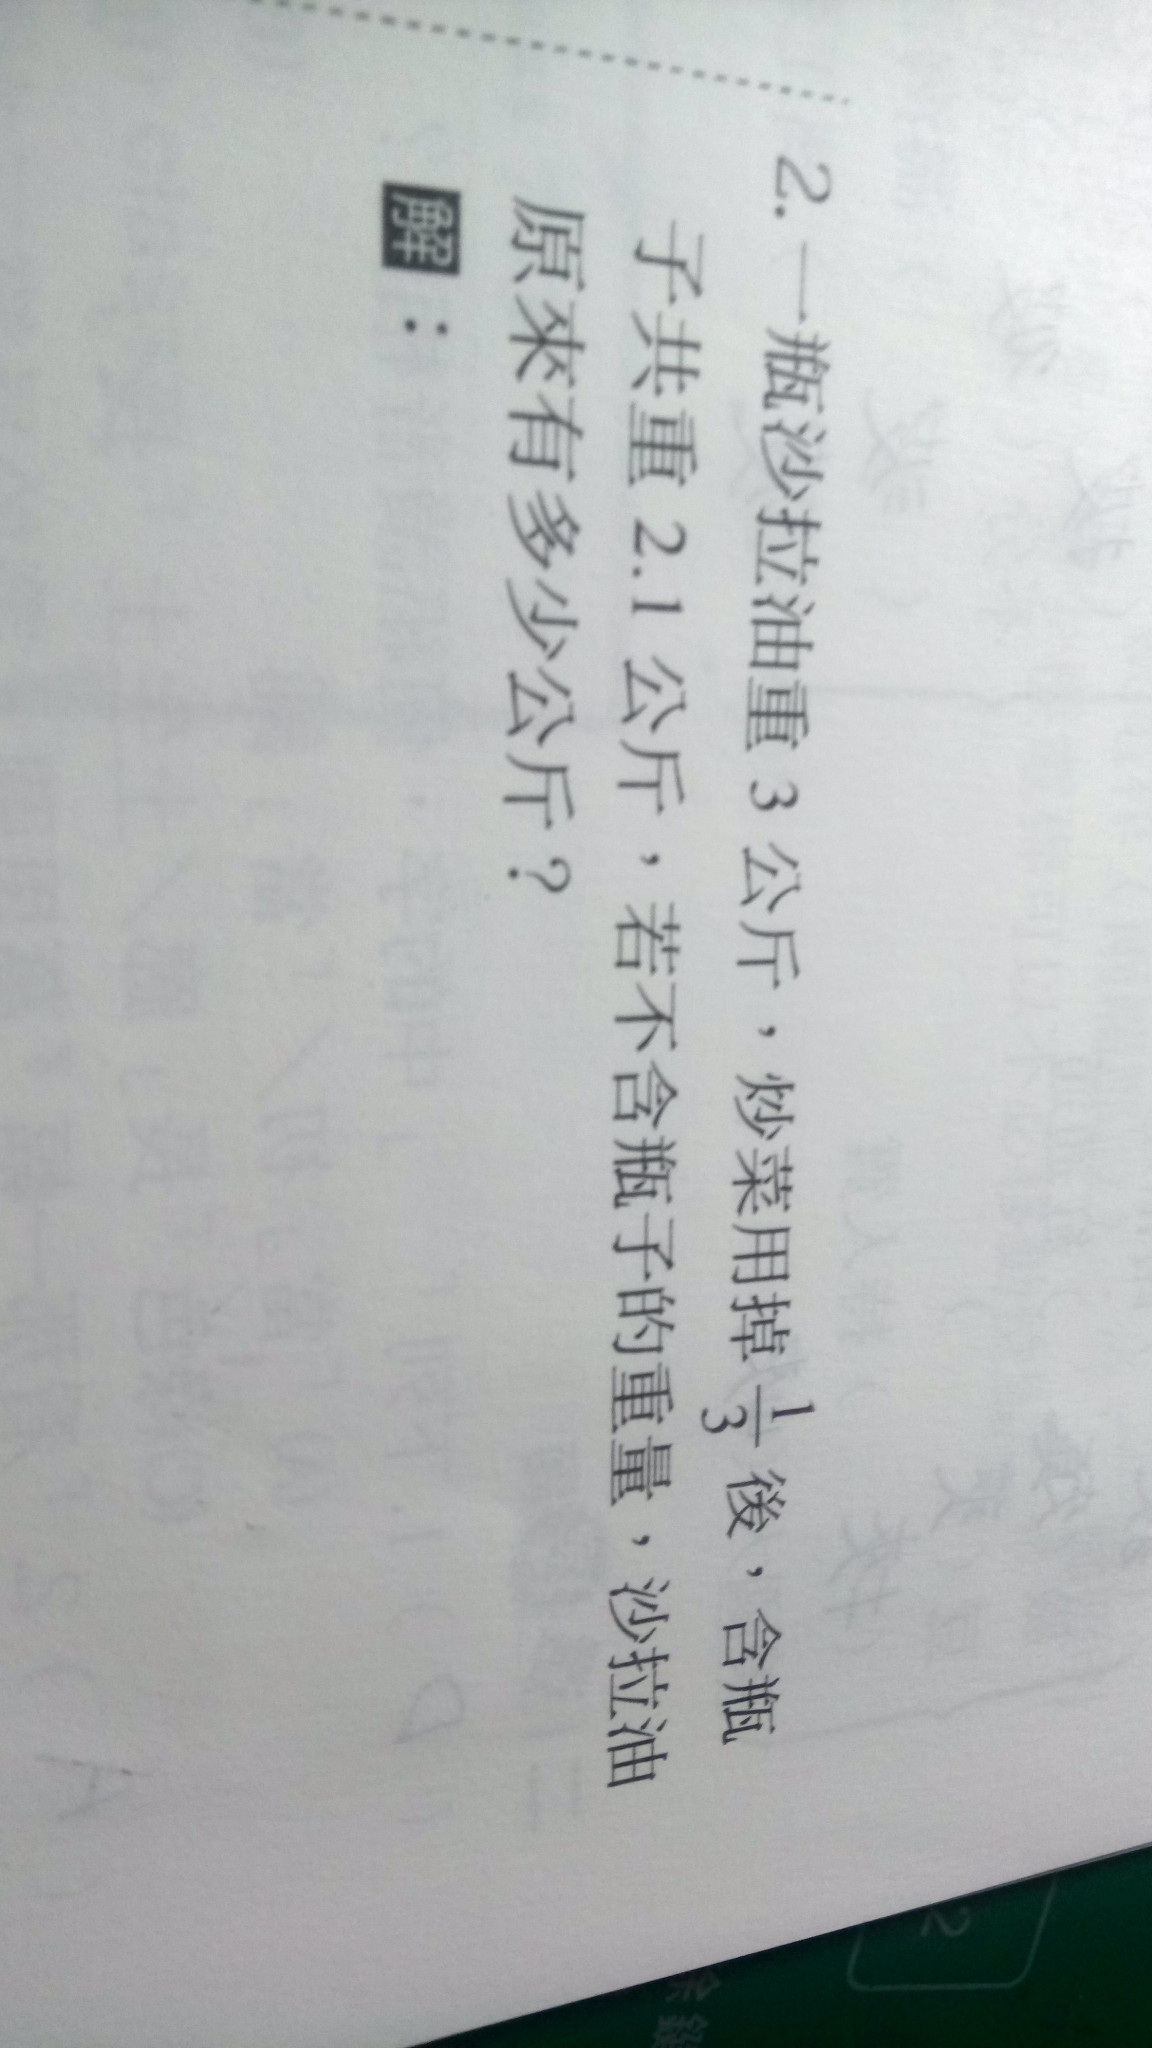 2. 一瓶沙拉油重 3 公斤，炒菜用掉 1/3 後，含瓶
子共重 2.1 公斤，若不含瓶子的重量，沙拉油
原來有多少公斤？
解：
2